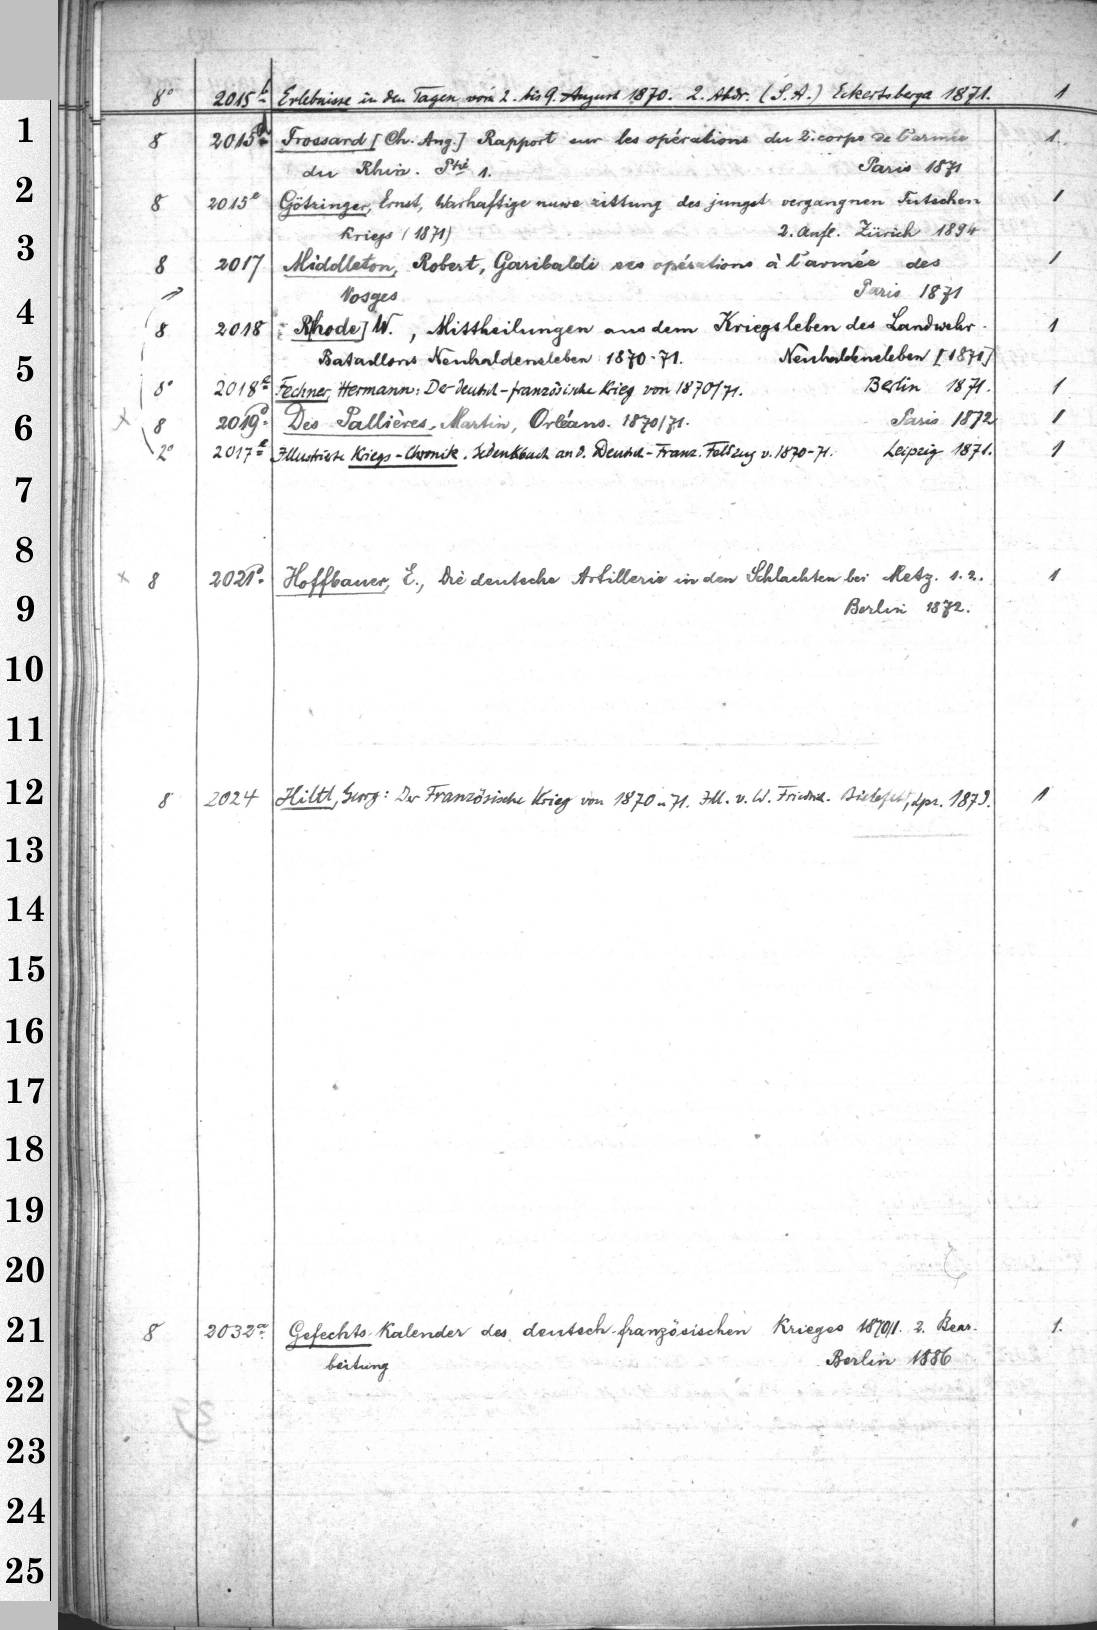 8° 2015b Erlebnisse in den Tagen vom 2. bis 9. August 1870. 2. Abdr. (S. A.) Eckertsberga 1871. 1
1 8 2015d Frossard [Ch. Aug.] Rapport sur les opérations du 2. corps de l'armée 1.
du Rhin. Ptie 1. Paris 1871
2 8 2015e Götzinger, Ernst, Warhaftige nuwe zittung des jungst vergangnen Tutschen 1
Kriegs (1871) 2. Aufl. Zürich 1894
3 8 2017 Middleton, Robert, Garibaldi ses opérations à l'armée des 1
Vosges Paris 1871
4 8 2018 R[hode] W., Mittheilungen aus dem Kriegsleben des Landwehr- 1
5 Bataillons Neuhaldensleben 1870-71. Neuhaldensleben [1871]
8° 2018a Fechner, Hermann: Der deutsch-französische Krieg von 1870/71. Berlin 1871. 1
6 x 8 2019 Des Pallières, Martin, Orléans. 1870/71. Paris 1872 1
2° 2017a Illustrirte Kriegs-Chronik. Gedenkbuch an d. Deutsch-Franz. Feldzug v. 1870-71. Leipzig 1871. 1
7
8 x 8 2021 Hoffbauer, E., Die deutsche Artillerie in den Schlachten bei Metz. 1. 2. 1
9 Berlin 1872.
10
11
12 8 2024 Hiltl, Georg: Der Französische Krieg von 1870 u 71. Ill. v. W. Friedrich. Bielefeld, Lpz. 1873. 1
13
14
15
16
17
18
19
20
21 8 2032a. Gefechts-Kalender des deutsch-französischen Krieges 1870/1. 2. Bear- 1.
22 beitung Berlin 1886
23
24
25